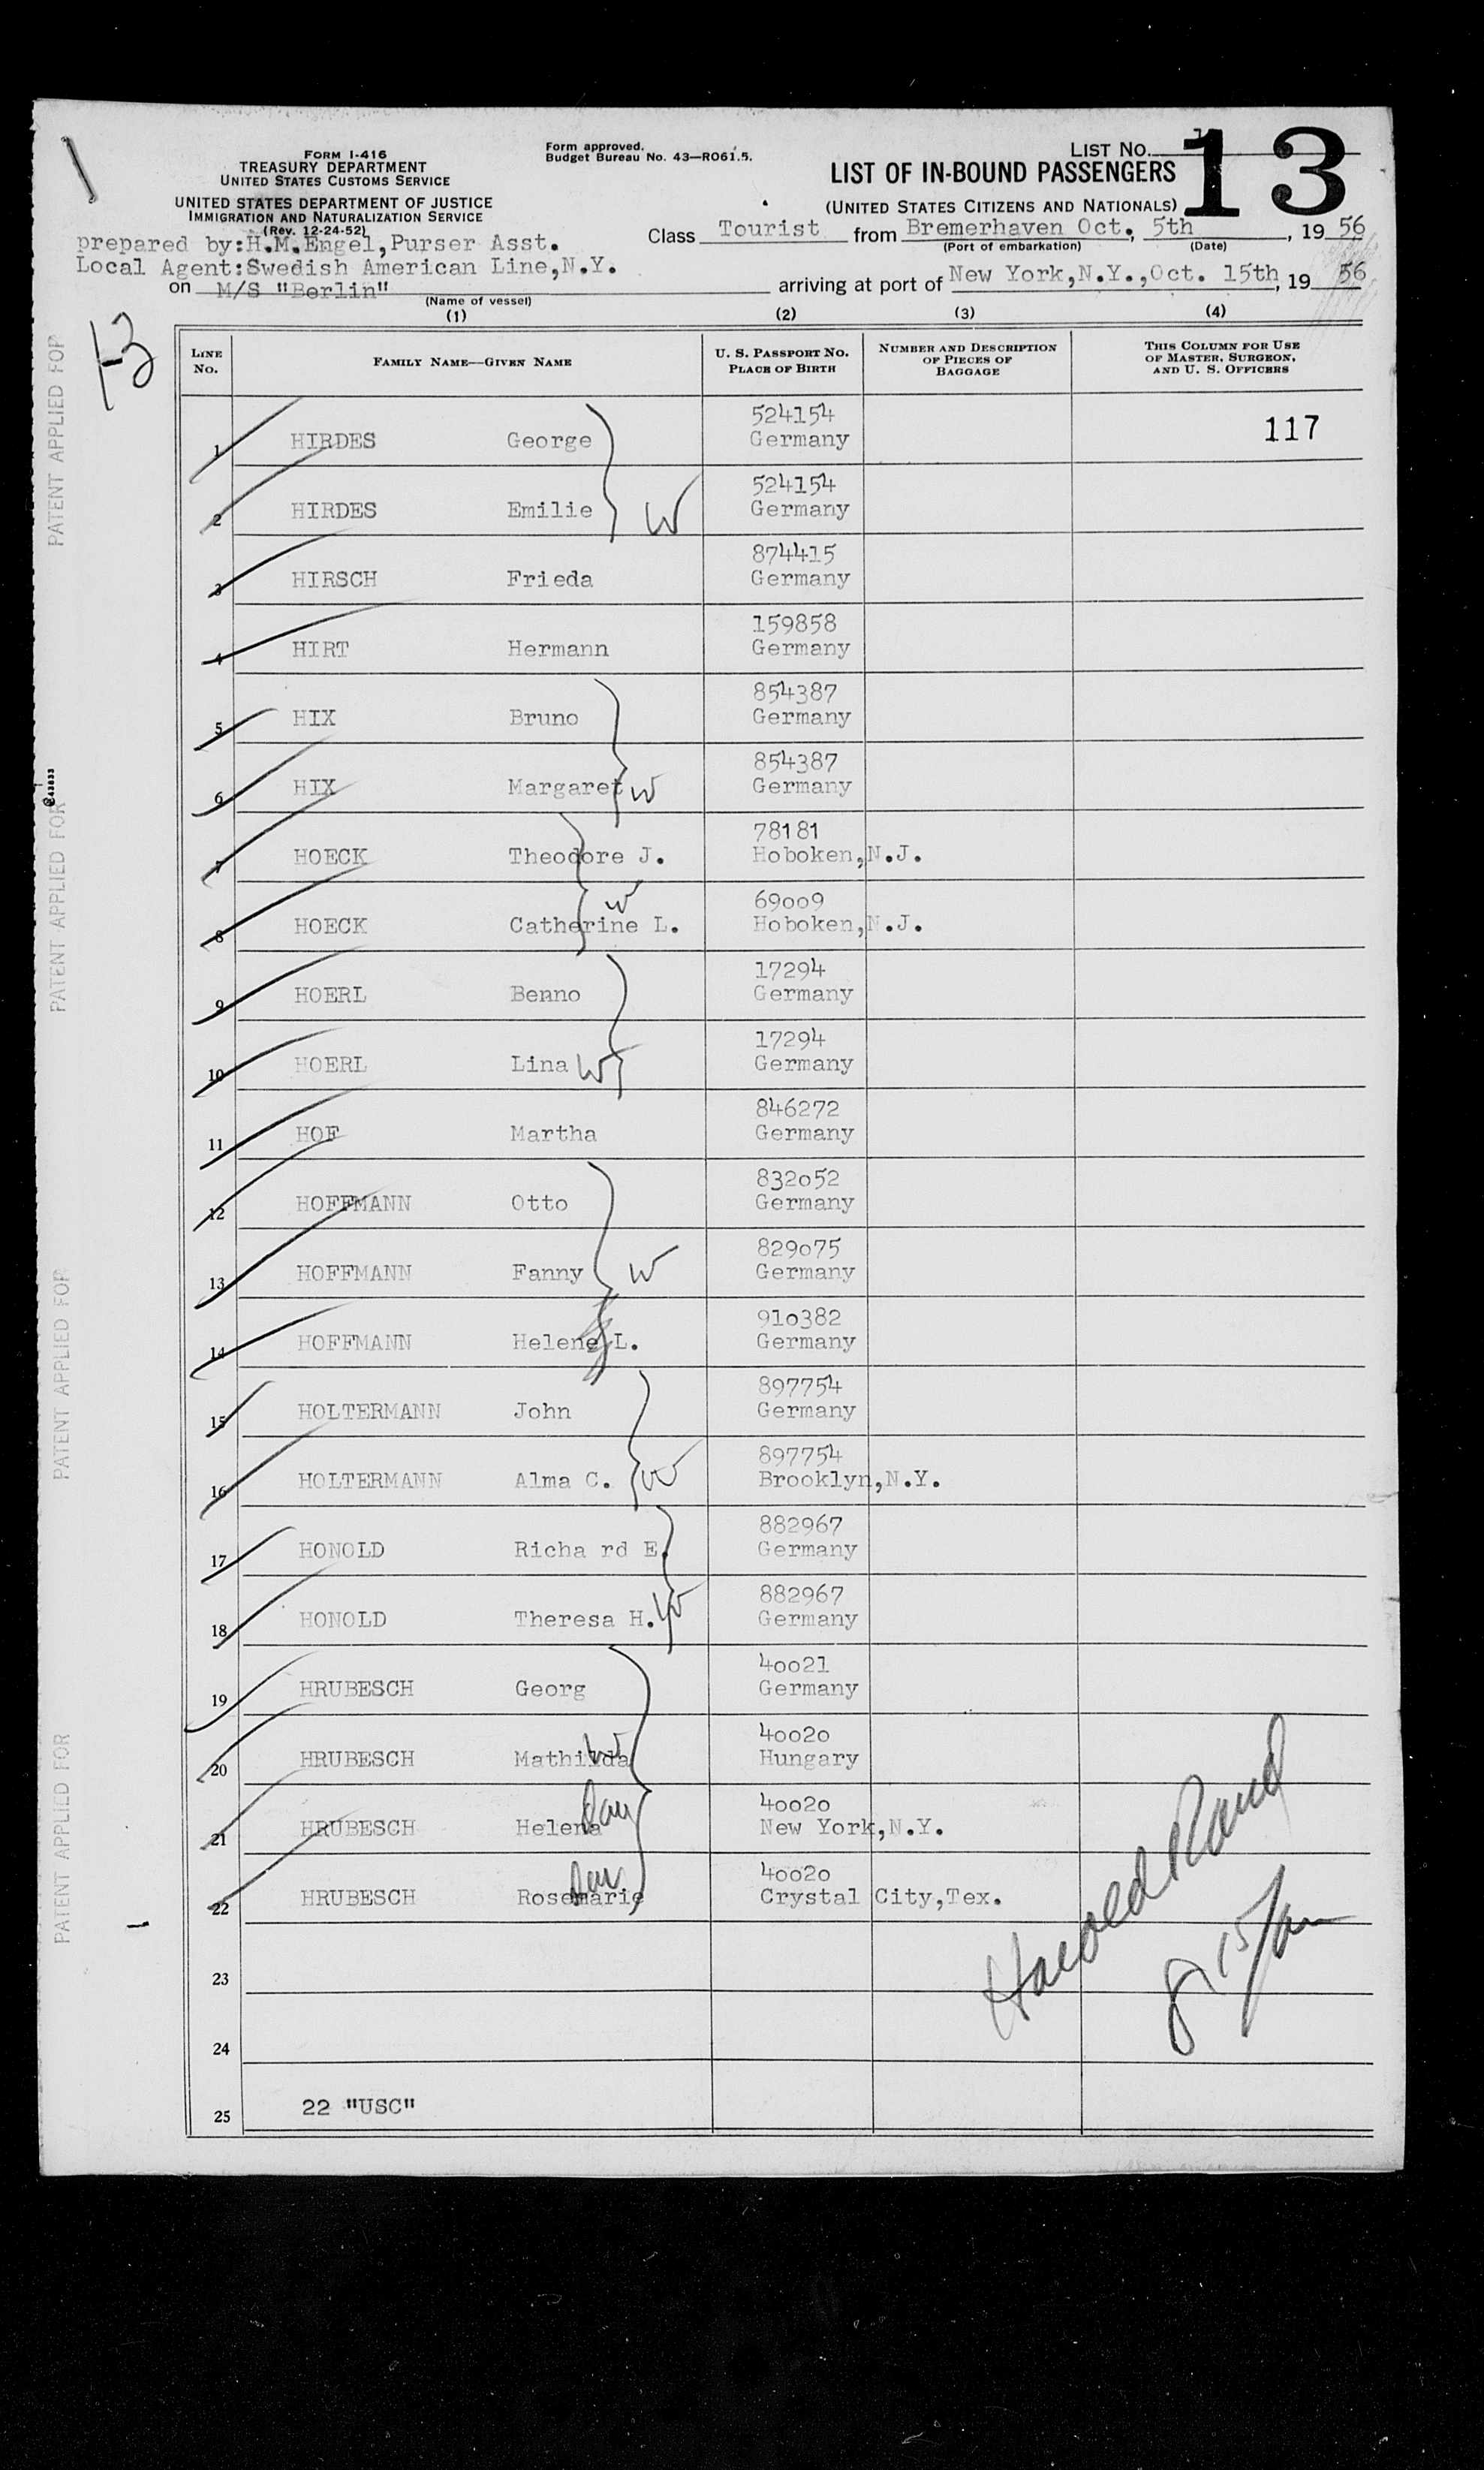 LIST NO. 13
FORM I-416
TREASURY DEPARTMENT
UNITED STATES CUSTOMS SERVICE
UNITED STATES DEPARTMENT OF JUSTICE
IMMIGRATION AND NATURALIZATION SERVICE
(Rev. 12-24-52)
Form approved.
Budget Bureau No. 43—RO61.5.
LIST OF IN-BOUND PASSENGERS
(UNITED STATES CITIZENS AND NATIONALS)
prepared by:H.M.Engel,Purser Asst.
Local Agent:Swedish American Line,N.Y.
Class Tourist from Bremerhaven Oct. 5th, 19 56
(Port of embarkation) (Date)
on M/S "Berlin" arriving at port of New York,N.Y.,Oct. 15th, 19 56
(Name of vessel)
(1) (2) (3) (4)
13
LINE NO. FAMILY NAME—GIVEN NAME U. S. PASSPORT NO. PLACE OF BIRTH NUMBER AND DESCRIPTION OF PIECES OF BAGGAGE THIS COLUMN FOR USE OF MASTER, SURGEON, AND U. S. OFFICERS
524154
1 HIRDES George Germany 117
524154
2 HIRDES Emilie W Germany
874415
3 HIRSCH Frieda Germany
159858
4 HIRT Hermann Germany
854387
5 HIX Bruno Germany
854387
6 HIX Margaret W Germany
78181
7 HOECK Theodore J. Hoboken,N.J.
69009
8 HOECK Catherine L. W Hoboken,N.J.
17294
9 HOERL Benno Germany
17294
10 HOERL Lina W Germany
846272
11 HOF Martha Germany
832052
12 HOFFMANN Otto Germany
829075
13 HOFFMANN Fanny W Germany
910382
14 HOFFMANN Helene L. Germany
897754
15 HOLTERMANN John Germany
897754
16 HOLTERMANN Alma C. W Brooklyn,N.Y.
882967
17 HONOLD Richa rd E. Germany
882967
18 HONOLD Theresa H. W Germany
40021
19 HRUBESCH Georg Germany
40020
20 HRUBESCH Mathilda W Hungary
40020
21 HRUBESCH Helena Dau New York,N.Y.
40020
22 HRUBESCH Rosemarie Dau Crystal City,Tex.
23
24
25 22 "USC"
Harold Rand
PATENT APPLIED FOR
PATENT APPLIED FOR
PATENT APPLIED FOR
PATENT APPLIED FOR